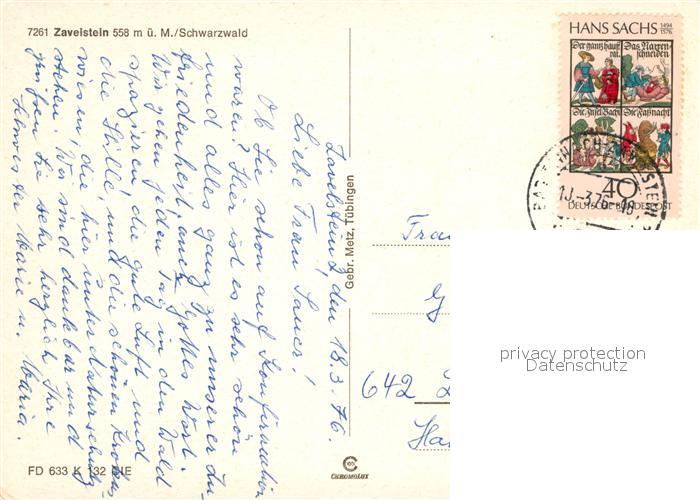 7261 Zavelstein 558 m ü. M./Schwarzwald
Zavelstein, den 18.3.76.
Liebe Frau Sauer!
Ob Sie schon auf Konfirmation
waren? Hier ist es sehr schön
und alles ganz zu unserer Zu-
friedenheit, auch Gottes Wort.
Wir gehen jeden Tag in den Wald
spazieren, die gute Luft und
die Stille, und die schönen Krokus
wiesen, die hier unter Naturschutz
stehen. Wir sind dankbar und
grüßen Sie sehr herzlich Ihre
Schwester Marie u. Maria.
FD 633 K 132
Gebr. Metz, Tübingen
CHROMOLUX
HANS SACHS 1494 1576
Der ganz hauß rat.
Das Narren schneiden
Die Insel Bachi
Die Faßnacht
40
DEUTSCHE BUNDESPOST
Frau
642
privacy protection
Datenschutz